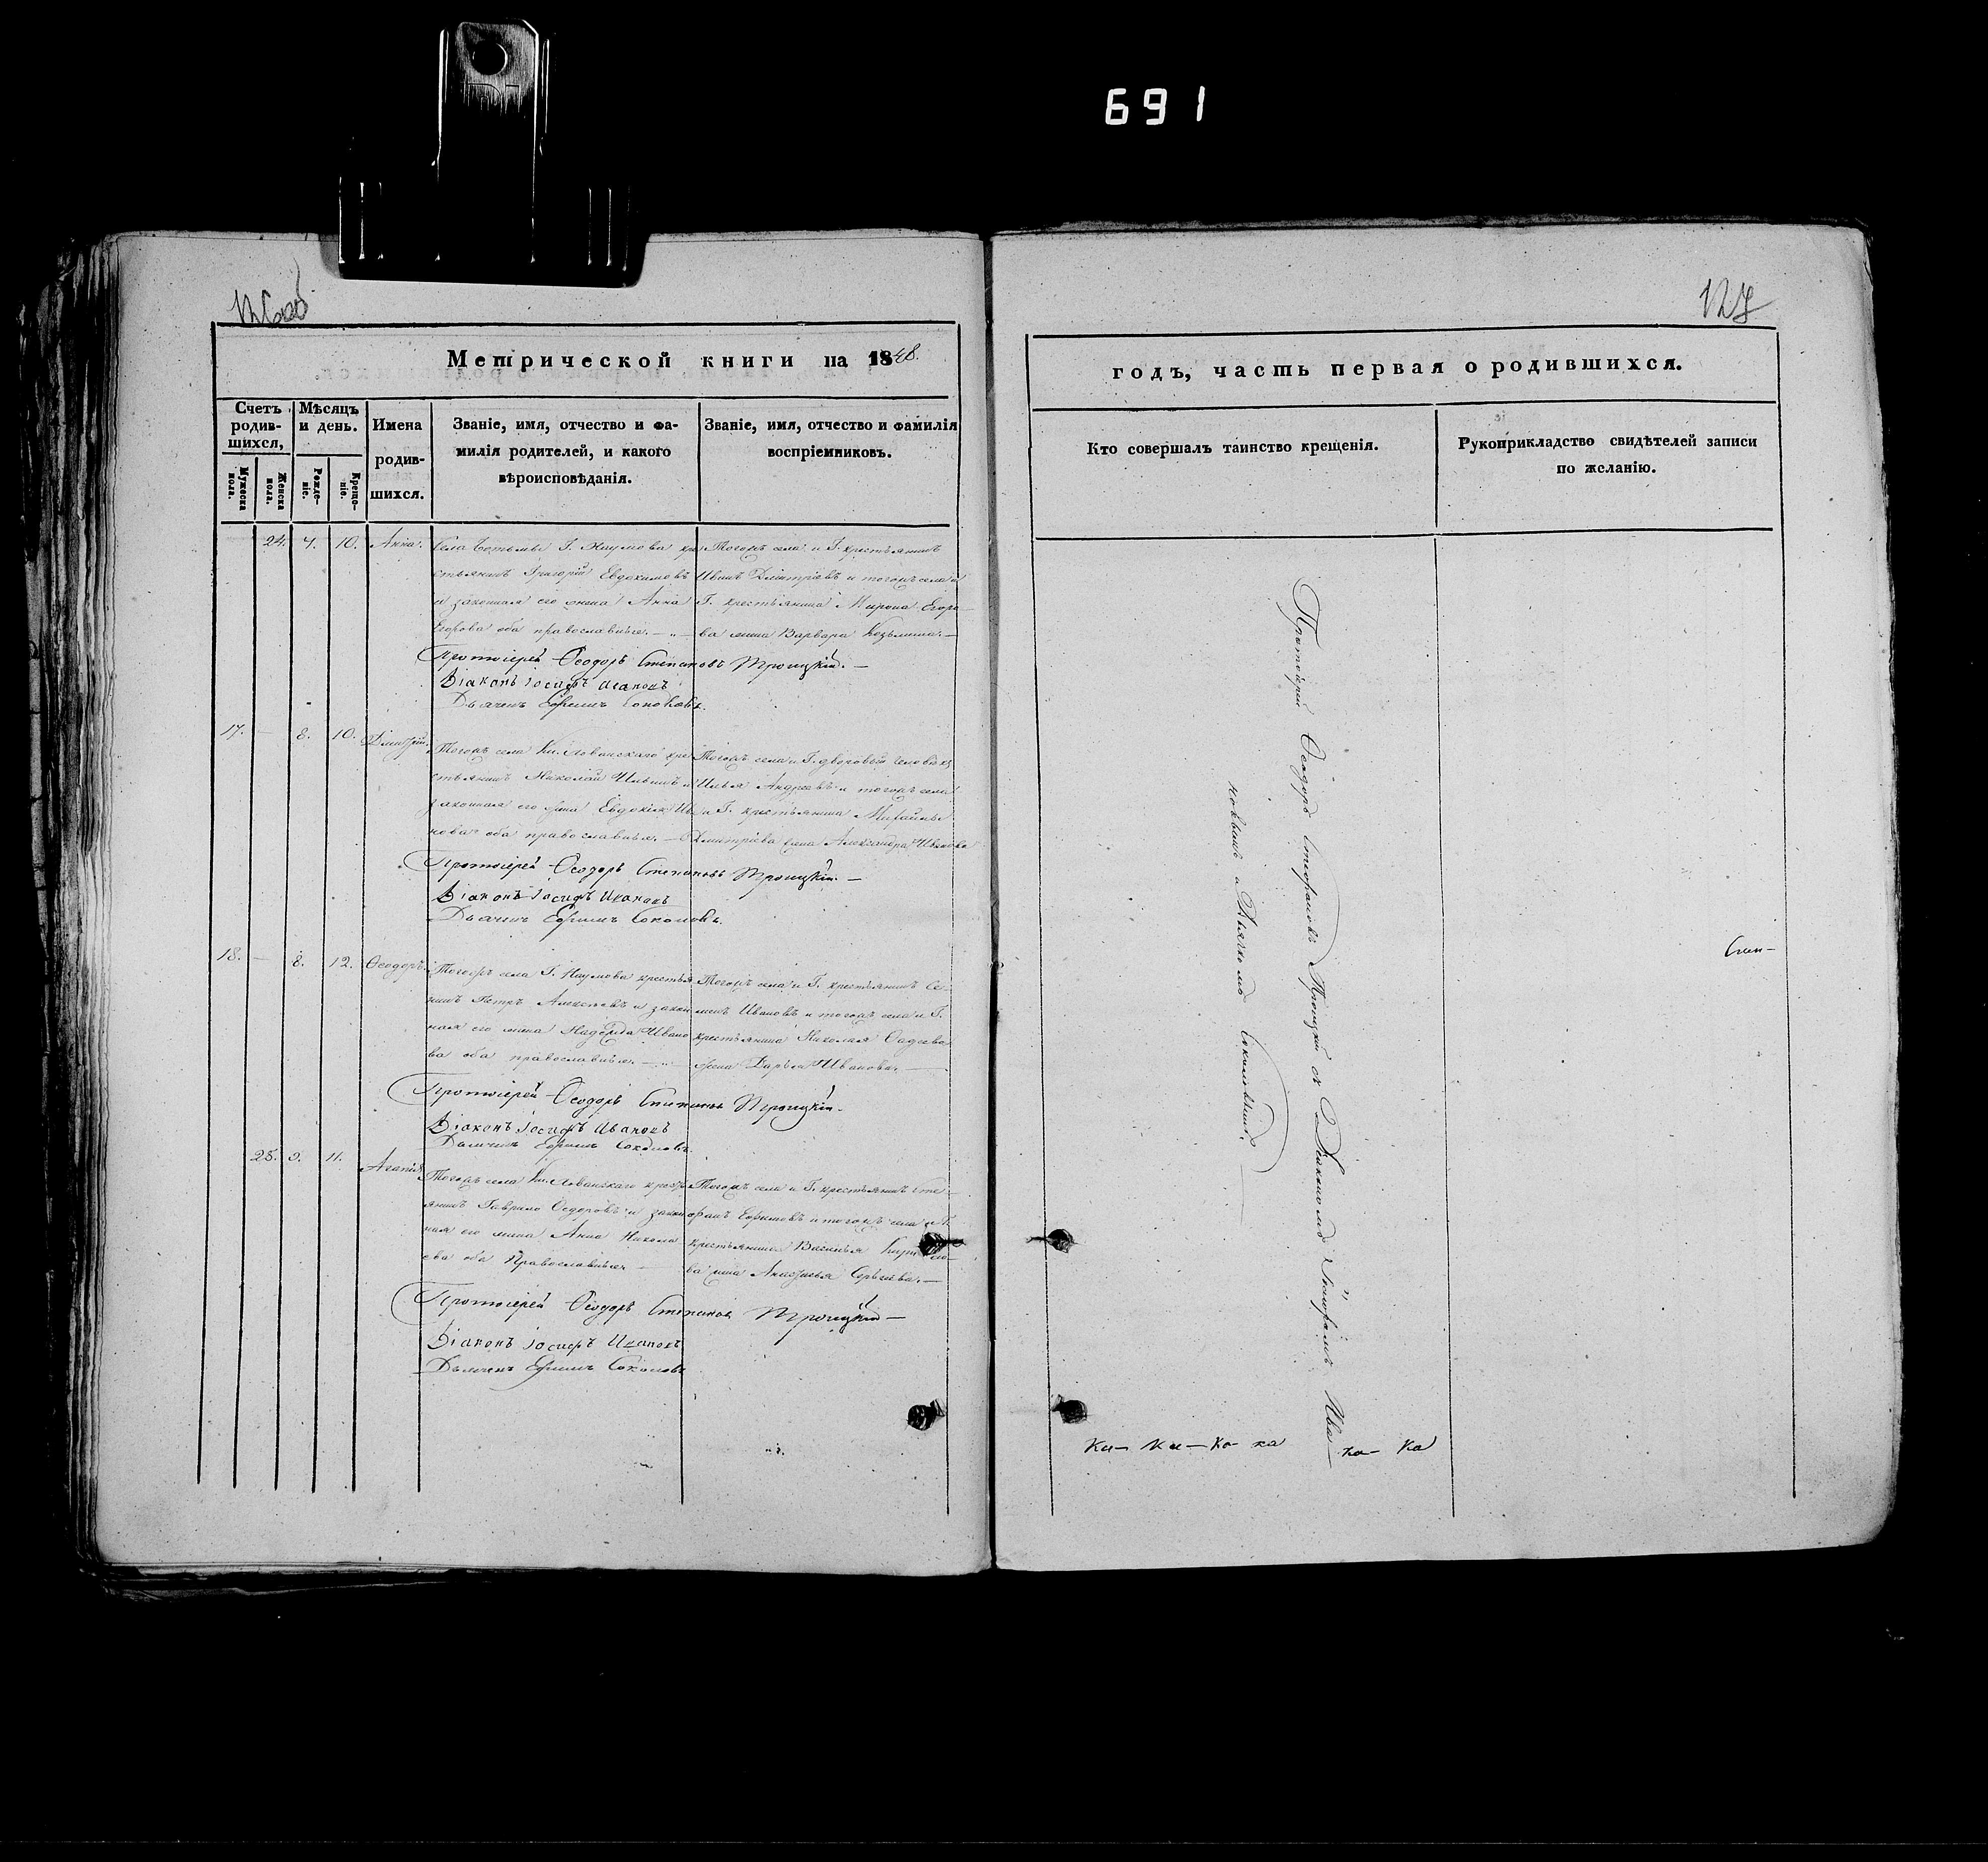 691
126об
Метрической книги на 1848.
Счетъ родив-
шихся,
Мужеска пола.
Женска пола.
Мѣсяцъ и день.
Рожде-
ніе.
Креще-
ніе.
Имена
родив-
шихся.
Званіе, имя, отчество и фа-
милія родителей, и какого
вѣроисповѣданія.
Званіе, имя, отчество и фамилія
воспріемниковъ.
24. 7. 10. Анна.
Села Г. Наумова кре
стьянинъ Григорій Евдокимовъ
и законная его жена Анна
Егорова оба православные.
Тогожъ села и Г. крестьянинъ
Иванъ Дмитріевъ и тогожъ села и
Г. крестьянина Мирона Егоро-
ва жена Варвара Козьмина.
Протоіерей Ѳеодоръ Степановъ Троицкій.
Діаконъ Іосифъ Ивановъ
Дьячекъ Ефимъ Соколовъ.
17. — 8. 10. Дмитрій.
Тогожъ села Кн. крe
стьянинъ Николай Ильинъ и
законная его жена Евдокія Ива
нова оба православные.
Тогожъ села и Г. дворовый человѣкъ
Илья Андреевъ и тогожъ села
и Г. крестьянина Михайлы
Дмитріева жена Александра Иванова
Протоіерей Ѳеодоръ Степановъ Троицкій.
Діаконъ Іосифъ Ивановъ
Дьячекъ Ефимъ Соколовъ.
18. — 8. 12. Ѳеодоръ.
Тогожъ села Г. Наумова крестья
нинъ Петръ Алексѣевъ и закон
ная его жена Надежда Ивано
ва оба православные.
Тогожъ села и Г. крестьянинъ Се-
менъ Ивановъ и тогожъ села и Г.
крестьянина Николая
жена Дарья Иванова.
Протоіерей Ѳеодоръ Степановъ Троицкій.
Діаконъ Іосифъ Ивановъ
Дьячекъ Ефимъ Соколовъ.
25. 9. 11. Агапія
Тогожъ села Кн. крестья
янинъ Гаврило Ѳедоровъ и закон
ная его жена Анна Никола
ева оба Православные
Тогожъ села и Г. крестьянинъ Сте-
фанъ Ефимовъ и тогожъ села и Г.
крестьянина Василья
ва жена Анастасья Сергѣева.
Протоіерей Ѳеодоръ Степановъ Троицкій
Діаконъ Іосифъ Ивановъ
Дьячекъ Ефимъ Соколовъ
127
годъ, часть первая о родившихся.
Кто совершалъ таинство крещенія.
Рукоприкладство свидѣтелей записи
по желанію.
Протоіерей Ѳеодоръ Стефановъ Троицкій съ Діакономъ Іосифомъ Ива-
новымъ и Дьячкомъ Соколовымъ.